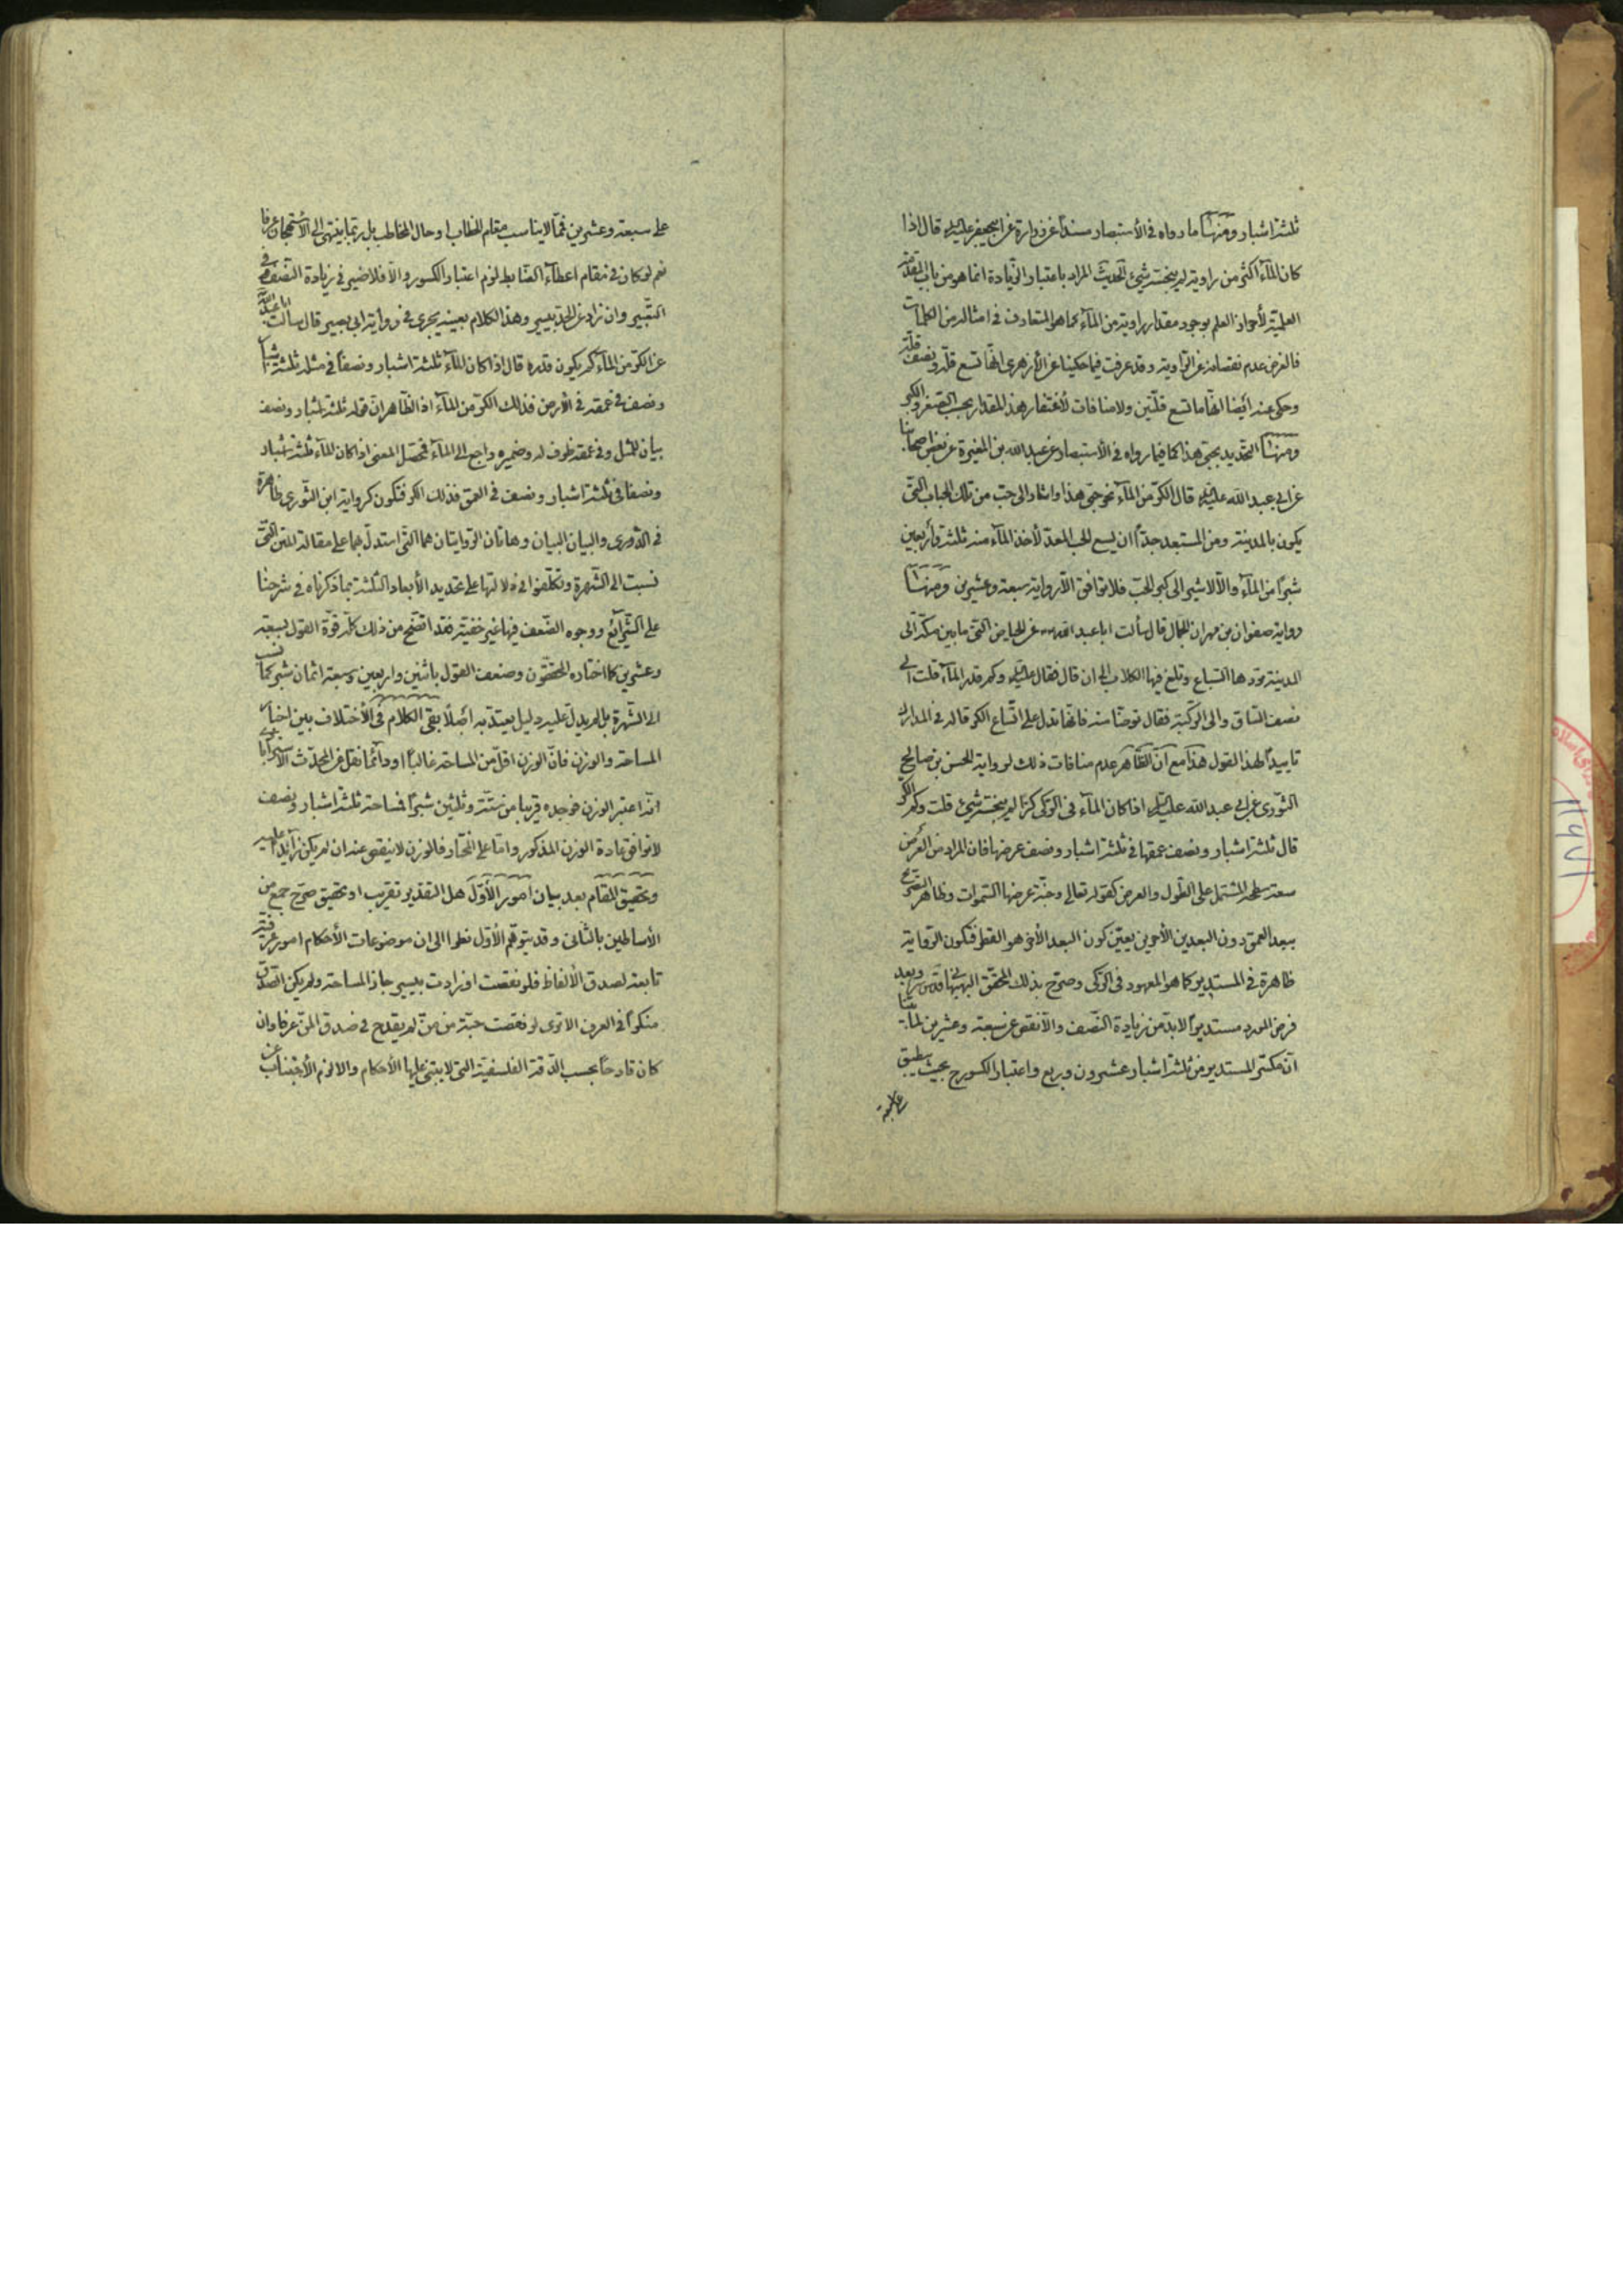 ثلثة اشبار ومنها ما رواه فى الأستبصار مسنداً عن زرارة عن ابيجعفر عليه السلم قال اذا
كان المآء اكثر من راوية لم ينجسه شيئ الحديث المراد باعتبار الزّيادة انما هو من باب المقدّمة
العلميّة لأحراز العلم بوجود مقدار راوية من المآء كما هو المتعارف فى امثاله من الكلمات
فالغرض عدم نقصانه عن الرّاوية وقد عرفت فيما حكينا عن الأزهرى انّها تسع قلّة ونصف قلّة
وحكى عنه ايضا انّها ما تسع قلّتين ولا منافات لأغتفار هذا المقدار بحسب الصّغر والكبر
ومنها التّحديد بحبّى هذا كما فيما رواه فى الأستبصار عن عبد الله بن المغيرة عن بعض اصحابنا
عن ابى عبد الله عليه السلم قال الكرّ من المآء نحو حبّى هذا واشار الى حبّ من تلك الحباب الّتى
يكون بالمدينة ومن المستبعد جدّاً ان يسع الحب المعدّ لأخذ المآء منه ثلثة وأربعين
شبراً من المآء والّا لاشير الى كبر الحبّ فلا توافق الّا رواية سبعة وعشرين ومنها
رواية صفوان بن مهران الجمال قال سألت ابا عبد الله عن الحياض الّتى ما بين مكّة الى
المدينة تردها السّباع وتلغ فيها الكلاب الى ان قال فقال عليه السلم وكم قدر المآء قلت الى
نصف السّاق والى الرّكبة فقال توضّأ منه فانّها تدل على اتّساع الكر قاله فى المدارك
تاييداً لهذا القول هذا مع انّ الظّاهر عدم منافات ذلك لرواية الحسن بن صالح
الثّورى عن ابى عبد الله عليه السلم اذا كان المآء فى الرّكى كرّا لم ينجسه شيئ قلت وكم الكر
قال ثلثة اشبار ونصف عمقها فى ثلثة اشبار ونصف عرضها فان المراد من العرض
سعة سطحه المشتمل على الطّول والعرض كقوله تعالى وجنّة عرضها السّموات وظاهر التّصريح
ببعد العمق دون البعدين الأخرين يعيّن كون البعد الأخر هو القطر فتكون الرّواية
ظاهرة فى المستدير كما هو المعهود فى الرّكى وصرّح بذلك المحقّق البهبهانى قدس سره وبعد
فرض المورد مستديراً لا بدّ من زيادة النّصف والّا نقص عن سبعة وعشرين لما بيّنا
انّ مكسّر المستدير من ثلثة اشبار عشرون وربع واعتبار الكسور ح بحيث ينطبق
على سبعة
على سبعة وعشرين فممّا لا يناسب مقام الخطاب او حال المخاطب بل ربّما ينتهى الى الأستهجان عرفا
نعم لو كان فى مقام اعطآء الضّابط لزم اعتبار الكسور والّا فلا ضير فى زيادة النّصف فى
التّعبير وان زاد عن الحدّ بيسير وهذا الكلام بعينه يجرى فى رواية ابى بصير قال سألت ابا عبد الله
عن الكرّ من المآء كم يكون قدره قال اذا كان المآء ثلثة اشبار ونصفاً فى مثله ثلثة اشبار
ونصف فى عمقه فى الأرض فذلك الكرّ من المآء اذ الظّاهر انّ قوله ثلثة اشبار ونصف
بيان للمثل وفى عمقه ظرف له وضميره راجع الى المآء فتحصّل المعنى اذا كان المآء ثلثة اشبار
ونصفا فى ثلثة اشبار ونصف فى العمق فذلك الكر فتكون كرواية ابن الثّورى ظاهرة
فى الدّورى والبيان البيان وهاتان الرّوايتان هما الّتى استدلّ بهما على مقالة المتن الّتى
نسبت الى الشّهرة وتكلّفوا فى دلالتها على تحديد الأبعاد الثّلثة بما ذكرناه فى شرحنا
على الشّرآئع ووجوه الضّعف فيها غير خفيّة فقد اتّضح من ذلك كلّه قوّة القول بسبعة
وعشرين كما اختاره المحقّقون وضعف القول باثنين واربعين وسبعة اثمان شبر كما نسب
الى الشّهرة بل لم يدلّ عليه دليل يعتدّ به اصلاً بقى الكلام فى الأختلاف بين اخبار
المساحة والوزن فانّ الوزن اقلّ من المساحة غالبا او دآئما نقل عن المحدّث الأسترابادى
انّه اعتبر الوزن فوجده قريبا من ستّة وثلثين شبراً فمساحة ثلثة اشبار ونصف
لا توافق عادة الوزن المذكور وامّا على المختار فالوزن لا ينقص عنه ان لم يكن زآئدا عليه
وتحقيق المقام بعد بيان امور الأوّل هل التقدير تقريب او تحقيق صرّح جمع من
الأساطين بالثّانى وقد يتوهّم الأوّل نظرا الى ان موضوعات الأحكام امور عرفيّة
تابعة لصدق الألفاظ فلو نقصت او زادت بيسير جاز المساحة ولم يكن الصّدق
منكراً فى العرف الا ترى لو نقصت حبّة من منّ لم يقدح فى صدق المنّ عرفا وان
كان قادحا بحسب الدّقة الفلسفيّة الّتى لا يبتنى عليها الأحكام والا لزم الأجتناب عن